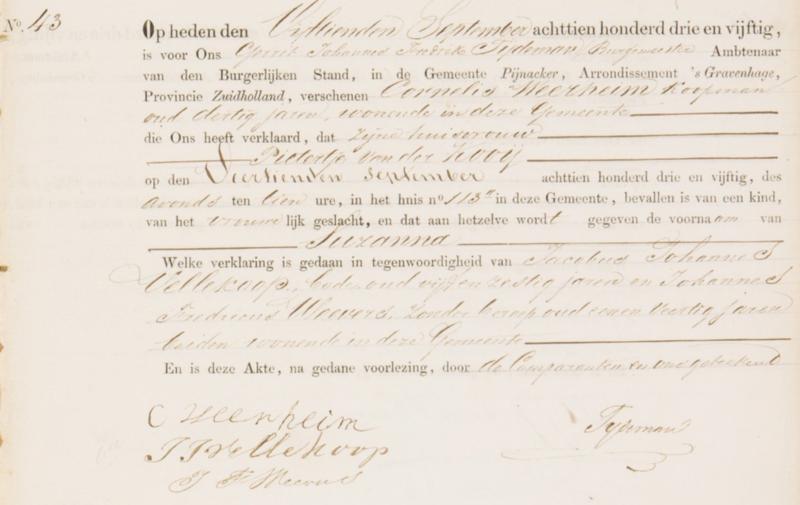 No. 43
Op heden den Vijftienden September achttien honderd drie en vijftig,
is voor Ons Gerrit Johannes Fredrik Tydeman Burgemeester Ambtenaar
van den Burgerlijken Stand, in de Gemeente Pijnacker, Arrondissement 's Gravenhage,
Provincie Zuidholland, verschenen Cornelis Weerheim Koopman
oud dertig jaren, wonende in deze Gemeente
die Ons heeft verklaard, dat zijne huisvrouw
Pietertje van der Kooij
op den Veertienden September achttien honderd drie en vijftig, des
avonds ten tien ure, in het huis no 113 in deze Gemeente, bevallen is van een kind,
van het vrouwelijk geslacht, en dat aan hetzelve wordt gegeven de voornaam van
Suzanna
Welke verklaring is gedaan in tegenwoordigheid van Jacobus Johannes
Vellekoop, bode, oud vijf en zestig jaren en Johannes
Fredricus Weevers, zonder beroep oud een en veertig jaren
beiden wonende in deze Gemeente
En is deze Akte, na gedane voorlezing, door de Comparanten en ons geteekend
C Weerheim
J J Vellekoop
Tydeman
J F Weevers